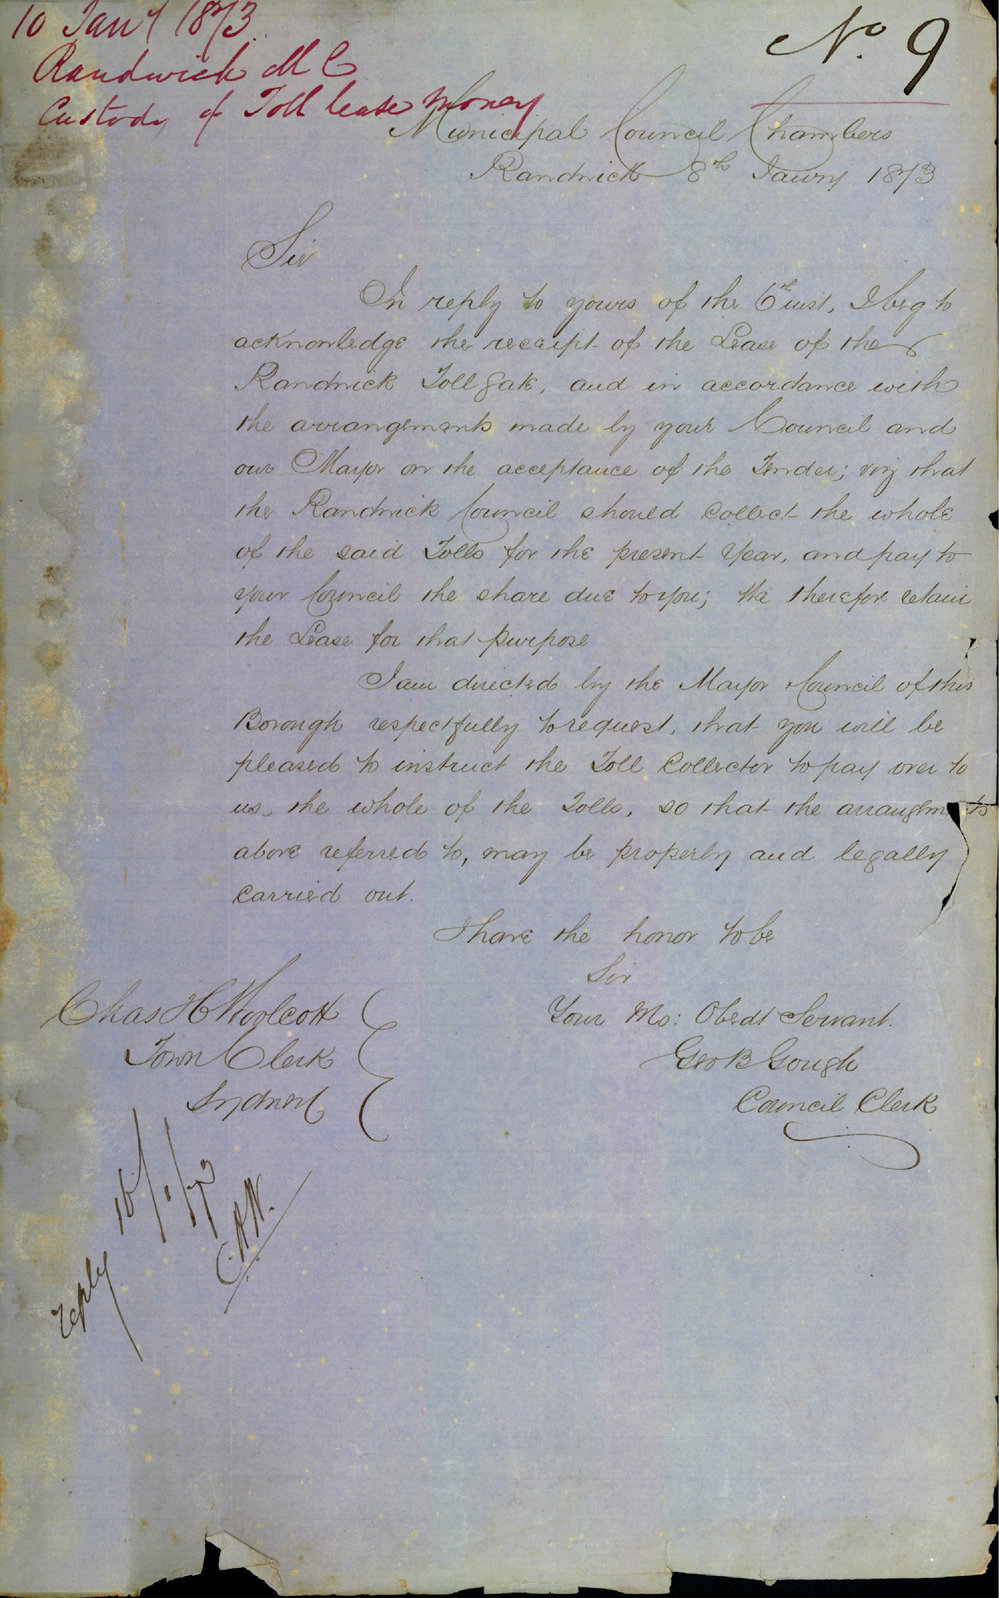 10 Jany 1873.
Randwick M C
Custody of Toll lease Money
No. 9
Municipal Council Chambers
Randwick 8th Jany 1873
Sir
In reply to yours of the 6th inst, I beg to
acknowledge the receipt of the Lease of the
Randwick Toll Gate, and in accordance with
the arrangements made by your Council and
our Mayor on the acceptance of the Tender; viz that
the Randwick Council should collect the whole
of the said Tolls for the present year, and pay to
your Council the share due to you; We therefore retain
the Lease for that purpose
I am directed by the Mayor & Council of this
Borough respectfully to request, that you will be
pleased to instruct the Toll Collector to pay over to
us, the whole of the Tolls, so that the arrangements
above referred to, may be properly and legally
carried out.
I have the honor to be
Sir
Your Mo: Obedt Servant.
Geo B Gough
Council Clerk
Chas H Woolcott
Town Clerk
Sydney
reply 10/1/73